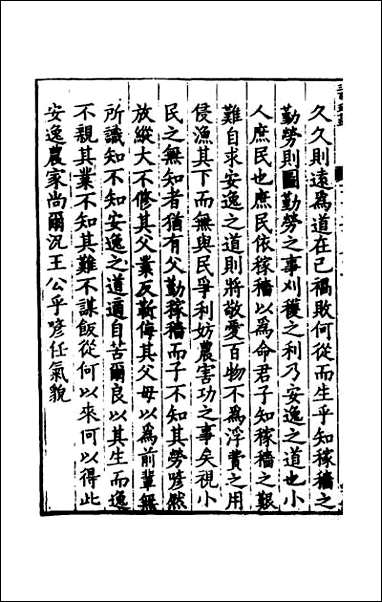 久久則遠爲道在己禍敗何從而生乎知稼穡之
勤勞則圖勤勞之事刈穫之利乃安逸之道也小
人庶民也庶民依稼穡以爲命君子知稼穡之艱
難自求安逸之道則將敬愛百物不爲浮費之用
侵漁其下而無與民爭利妨農害功之事矣視小
民之無知者猶有父勤稼穡而子不知其勞喭然
放縱大不修其父業反斬侮其父母以爲前輩無
所識知不知安逸之道適自苦爾良以其生而逸
不親其業不知其難不謀飯從何以來何以得此
安逸農家尚爾況王公乎喭任氣貌